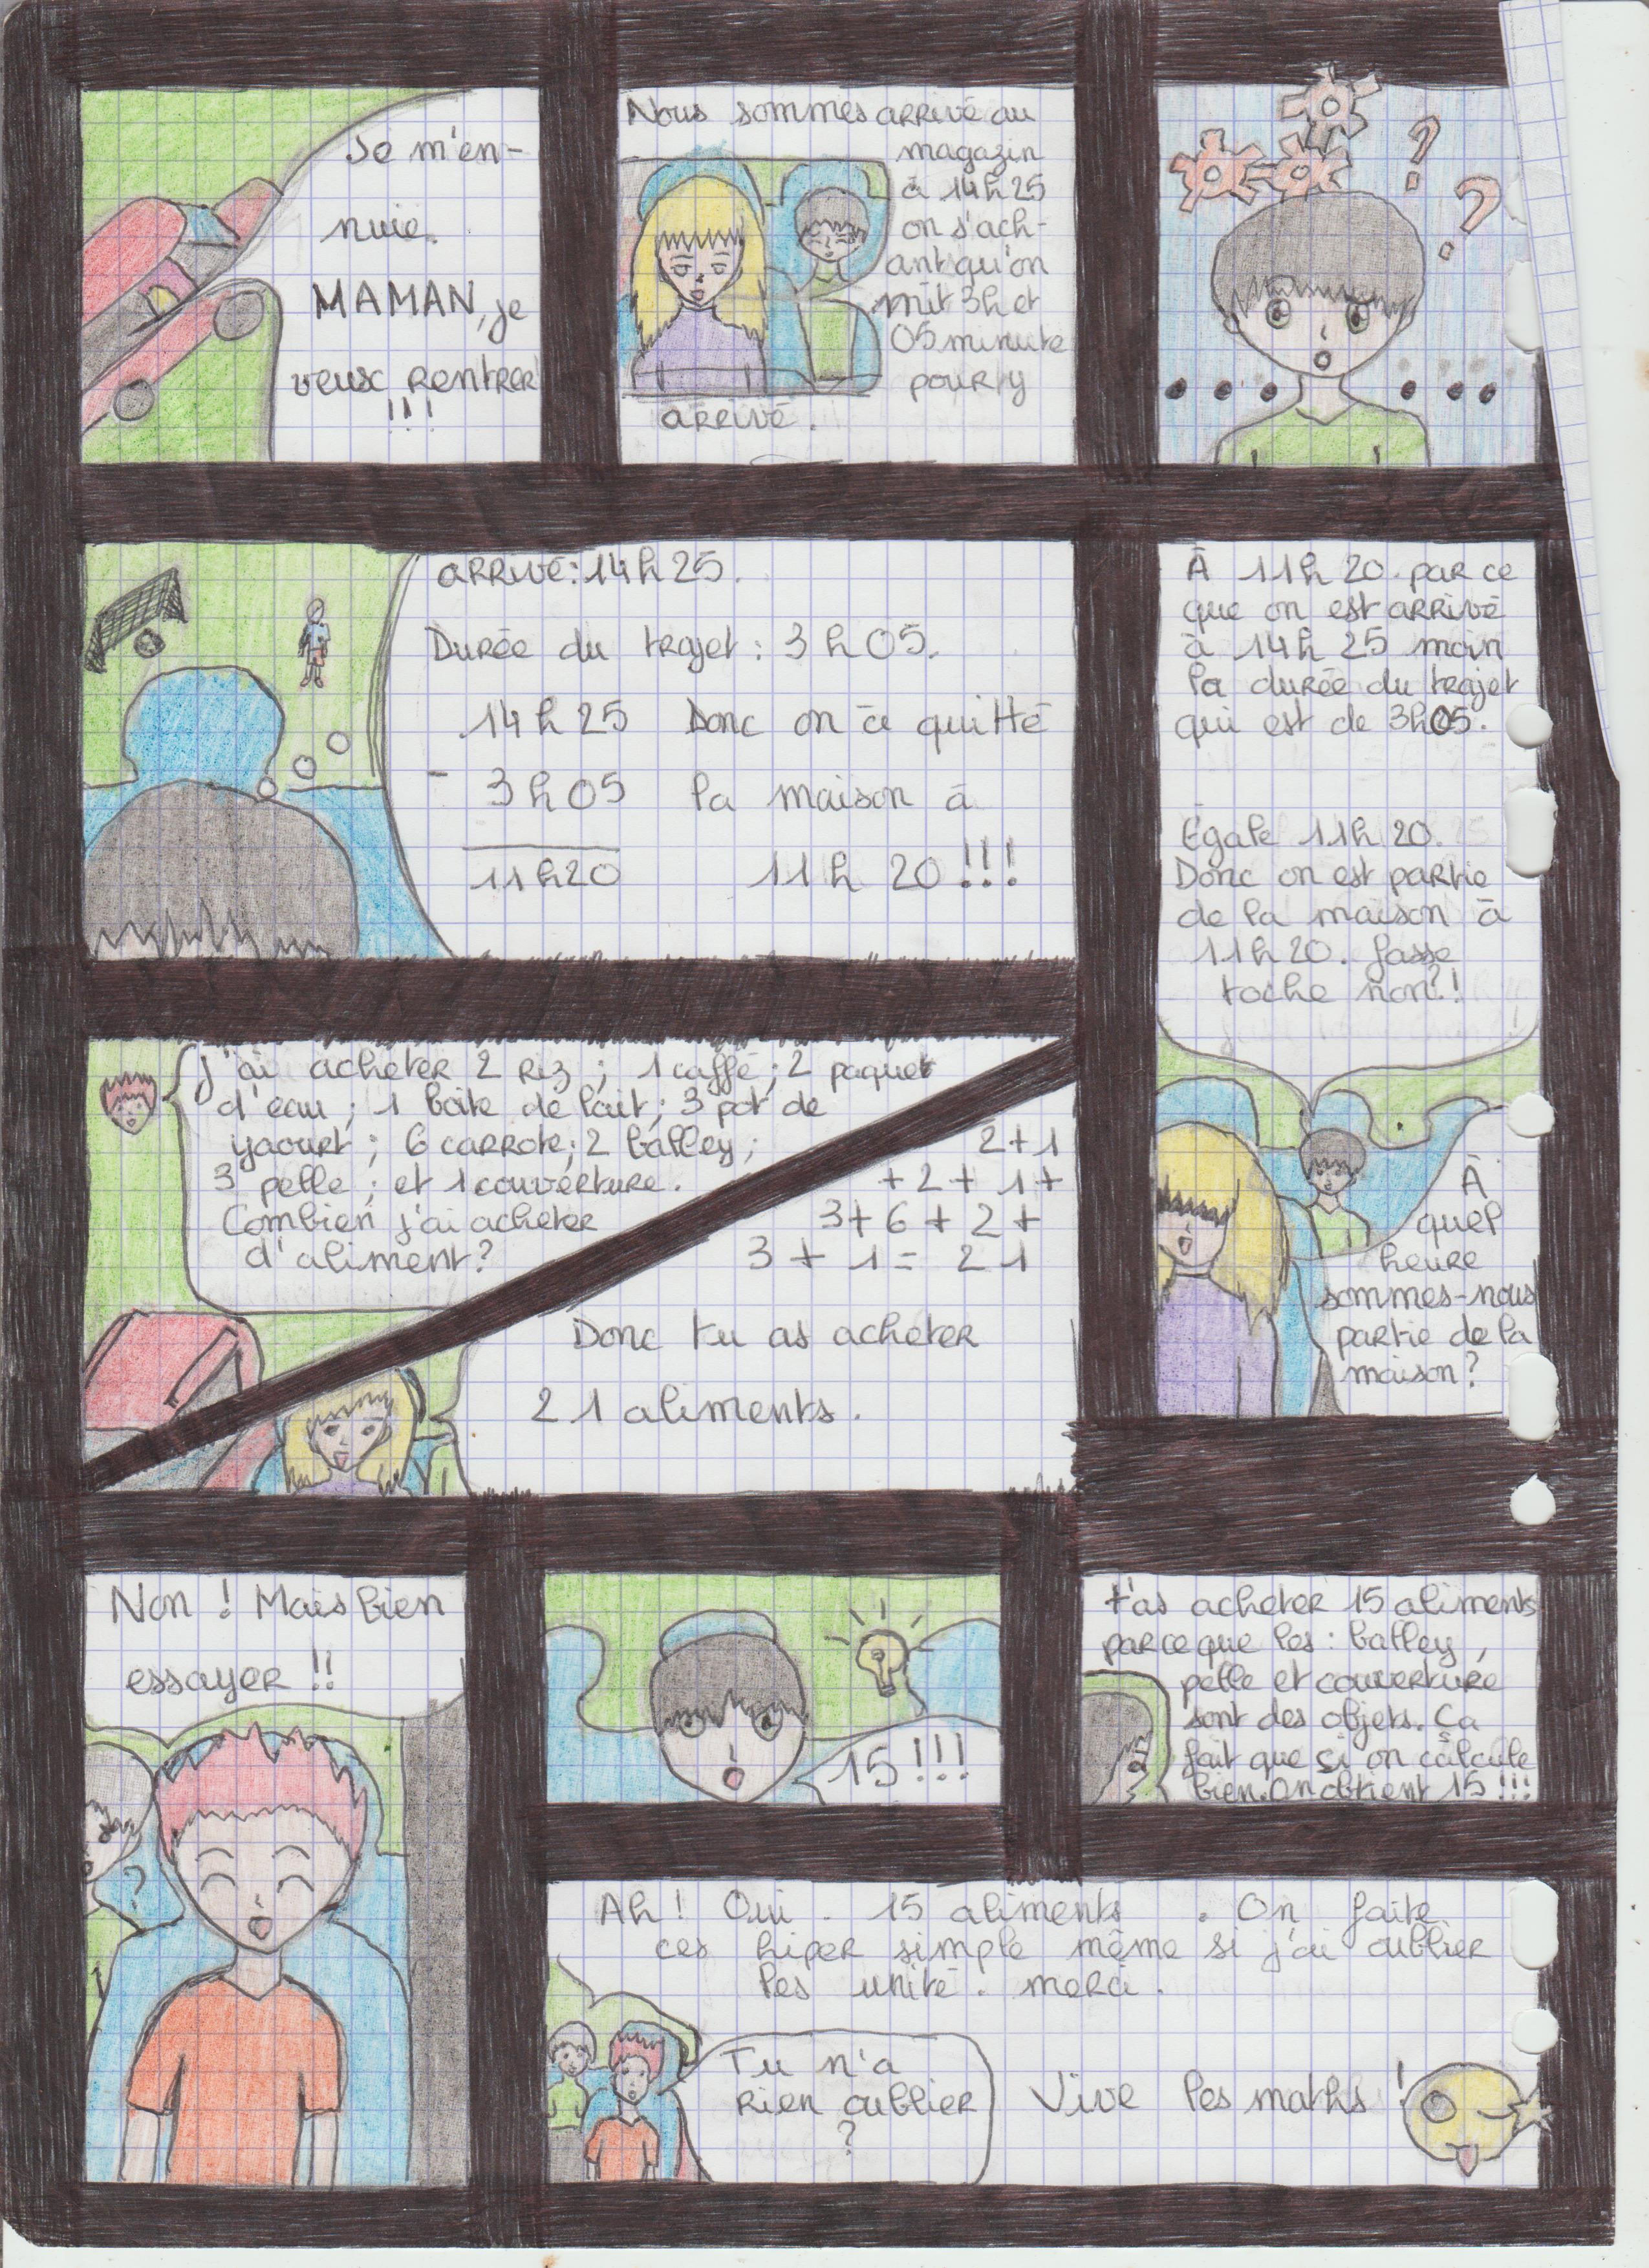 Je m'en-
nuie.
MAMAN, je
veux rentrer
!!!
Nous sommes arrivé au
magazin
à 14h25
on s'ach-
ant qu'on
mit 3h et
05 minute
pour y
arrivé.
? ?
arrivé : 14h25.
Durée du trajet : 3h05.
14h25 Donc on à quitté
- 3h05 la maison à
11h20 11h20 !!!
À 11h20. par ce
que on est arrivé
à 14h25 moin
la durée du trajet
qui est de 3h05.
Égale 11h20.
Donc on est partie
de la maison à
11h20. fasse
toche non?!
À
quel
heure
sommes-nous
partie de la
maison?
J'ai acheter 2 riz ; 1 caffé ; 2 paquet
d'eau ; 1 boite de lait ; 3 pot de
yaourt ; 6 carrote ; 2 balley ;
3 pelle ; et 1 couverture.
Combien j'ai acheter
d'aliment?
2+1
+2+1+
3+6+2+
3+1=21
Donc tu as acheter
21 aliments.
Non ! Mais bien
essayer !!
?
15 !!!
t'as acheter 15 aliments
parce que les : balley,
pelle et couverture
sont des objets. Ça
fait que si on calcule
bien. On obtient 15 !!!
Ah ! Oui. 15 aliments. On faite
ces hiper simple même si j'ai oublier
les unité. merci.
Tu n'a
rien oublier
?
Vive les maths !